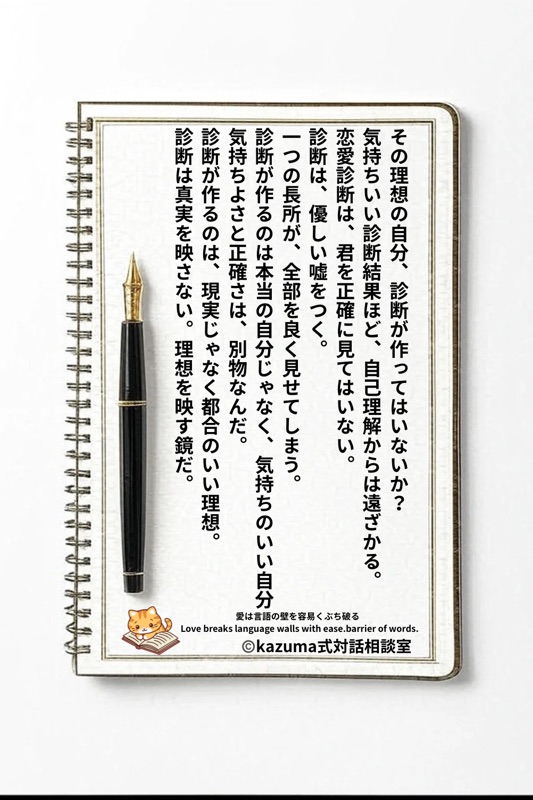 その理想の自分、診断が作ってはいないか？
気持ちいい診断結果ほど、自己理解からは遠ざかる。
恋愛診断は、君を正確に見てはいない。
診断は、優しい嘘をつく。
一つの長所が、全部を良く見せてしまう。
診断が作るのは本当の自分じゃなく、気持ちのいい自分
気持ちよさと正確さは、別物なんだ。
診断が作るのは、現実じゃなく都合のいい理想。
診断は真実を映さない。理想を映す鏡だ。
愛は言語の壁を容易くぶち破る
Love breaks language walls with ease.barrier of words.
©kazuma式対話相談室